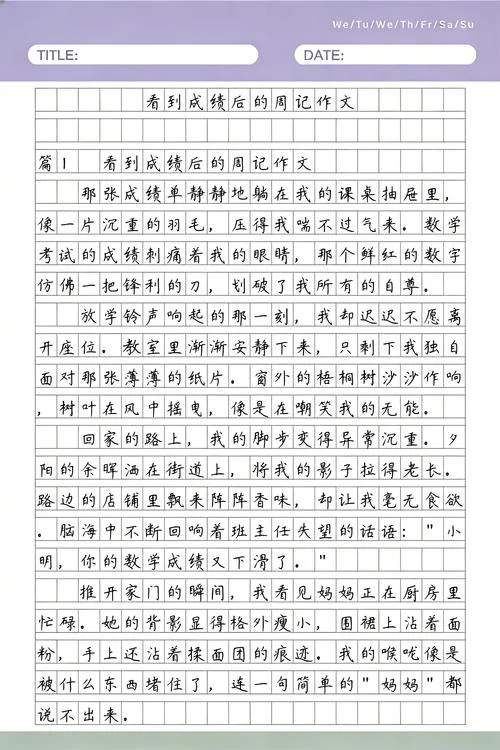 We/Tu/We/Th/Fr/Sa/Su
TITLE: DATE:
看到成绩后的周记作文
篇1 看到成绩后的周记作文
那张成绩单静静地躺在我的课桌抽屉里，
像一片沉重的羽毛，压得我喘不过气来。数学
考试的成绩刺痛着我的眼睛，那个鲜红的数字
仿佛一把锋利的刀，划破了我所有的自尊。
放学铃声响起的那一刻，我却迟迟不愿离
开座位。教室里渐渐安静下来，只剩下我独自
面对那张薄薄的纸片。窗外的梧桐树沙沙作响
，树叶在风中摇曳，像是在嘲笑我的无能。
回家的路上，我的脚步变得异常沉重。夕
阳的余晖洒在街道上，将我的影子拉得老长。
路边的店铺里飘来阵阵香味，却让我毫无食欲
。脑海中不断回响着班主任失望的话语："小
明，你的数学成绩又下滑了。"
推开家门的瞬间，我看见妈妈正在厨房里
忙碌。她的背影显得格外瘦小，围裙上沾着面
粉，手上还沾着揉面团的痕迹。我的喉咙像是
被什么东西堵住了，连一句简单的"妈妈"都
说不出来。